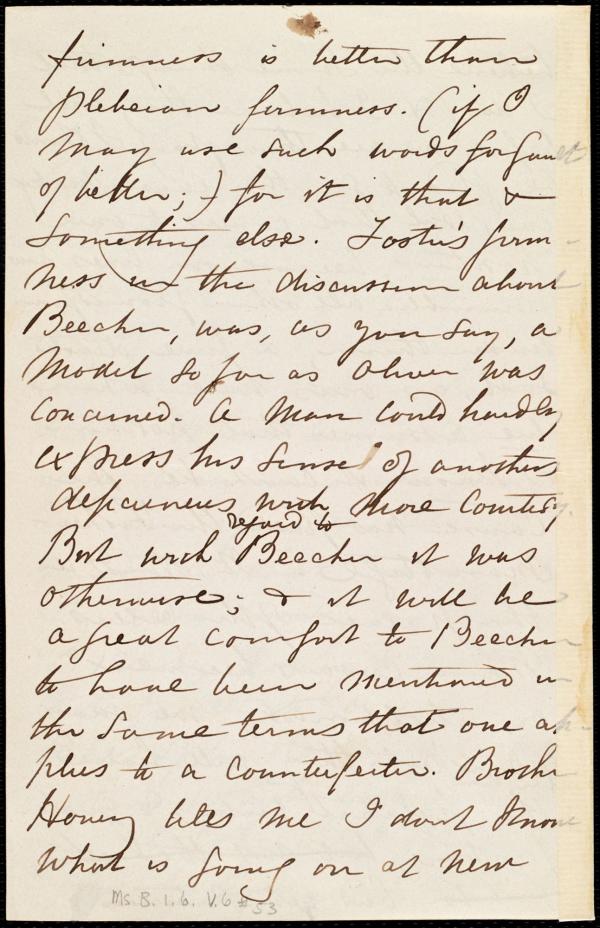 firmness is better than
plebeian firmness. (if I
may use such words for want
of better;) for it is that &
something else. Foster's firm-
ness in the discussion about
Beecher, was, as you say, a
model so far as Oliver was
concerned. A man could hardly
express his sense of anothers
deficiencies with more courtesy.
regard to
But with Beecher it was
otherwise; & it will be
a great comfort to Beecher
to have been mentioned in
the same terms that one ap-
plies to a counterfeiter. Brother
Hovey tells me I dont know
what is going on at New
Ms. B. 1. 6. V. 6 # 53